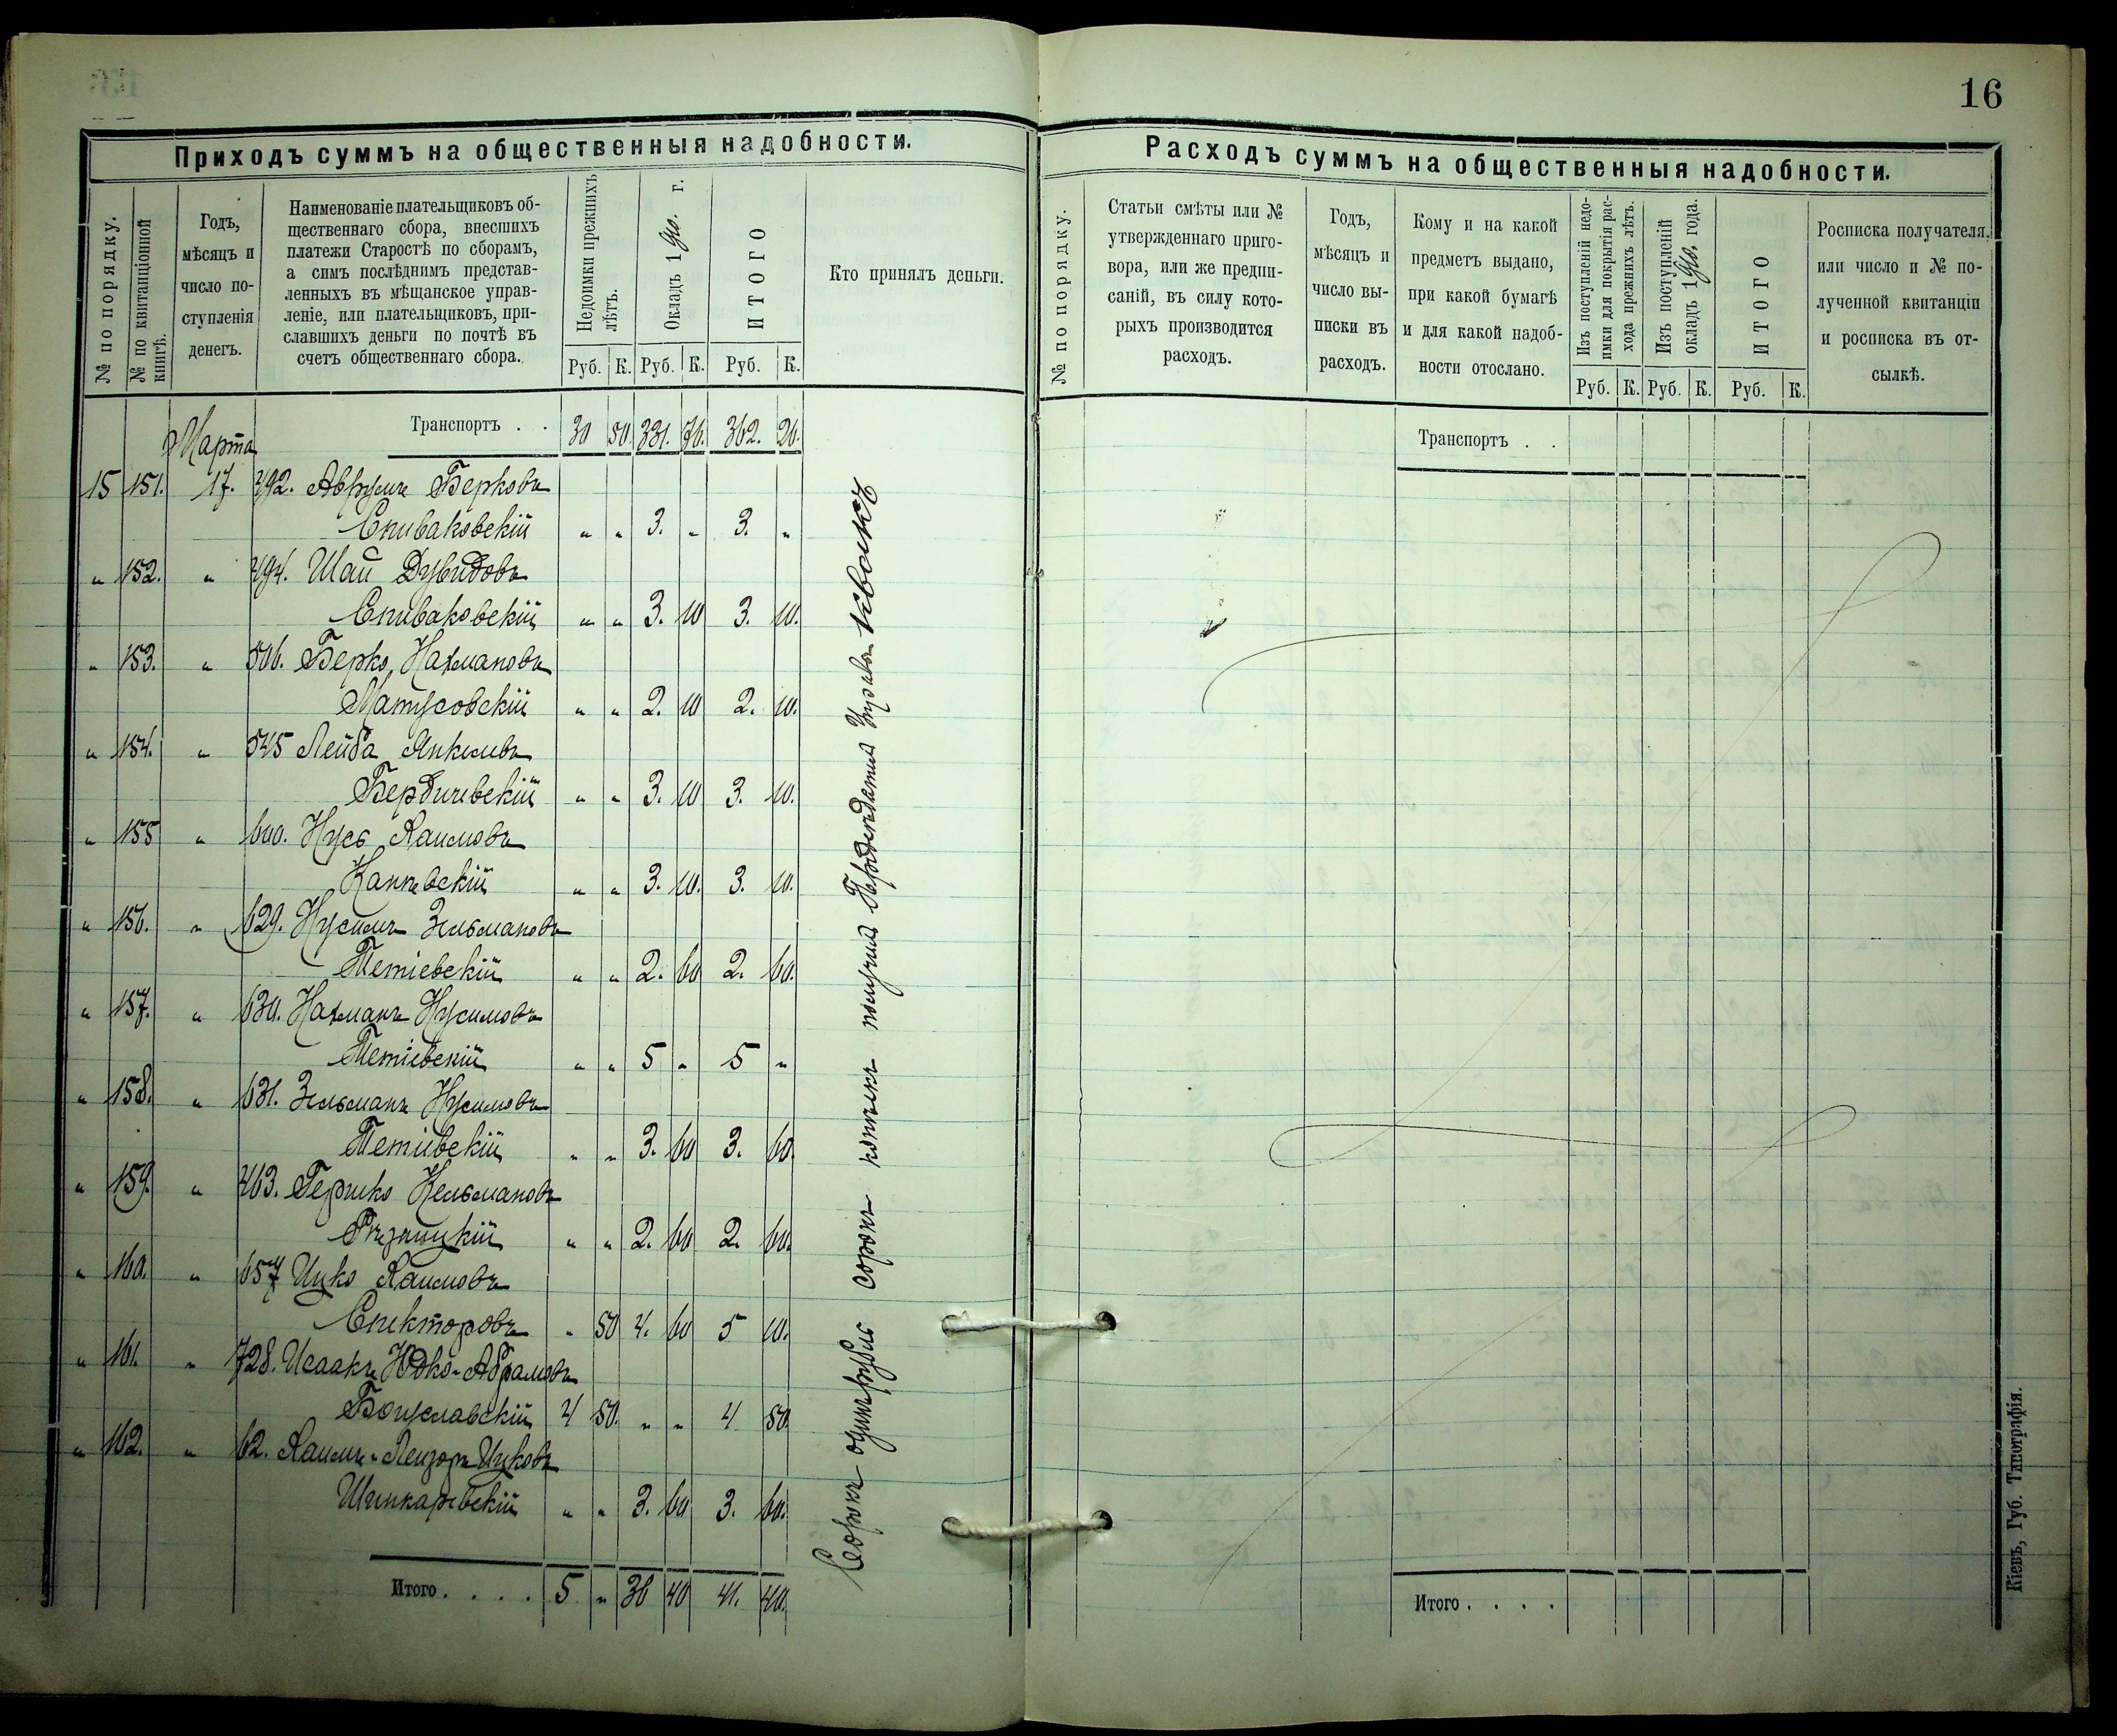 16
Приходъ суммъ на общественныя надобности.
№ по порядку.
№ по квитанціонной книгѣ.
Годъ,
мѣсяцъ и
число по-
ступленія
денегъ.
Наименованіе плательщиковъ об-
щественнаго сбора, внесшихъ
платежи Старостѣ по сборамъ,
а симъ послѣднимъ представ-
ленныхъ въ мѣщанское управ-
леніе, или плательщиковъ, при-
славшихъ деньги по почтѣ въ
счетъ общественнаго сбора.
Недоимки прежнихъ
лѣтъ.
Окладъ 1 г.
ИТОГО
Кто принялъ деньги.
Руб. К. Руб. К. Руб. К.
Транспортъ . . 30 50. 331. 70. 362. 20.
Марта
15 151. 17. 492. Аврумъ Берковъ
Спиваковскій " " 3. " 3. "
" 152. " 494. Шай Дувидовъ
Спиваковскій " " 3. 10 3. 10.
" 153. " 506. Берко Нахмановъ
Матусовскій " " 2. 10 2. 10.
" 154. " 545 Лейба Янкелевъ
Бердичевскій " " 3. 10 3. 10.
" 155 " 600. Нусь Хаимовъ
Каневскій " " 3. 10. 3. 10.
" 156. " 629. Нусимъ Зельмановъ
Тетіевскій " " 2. 60 2. 60.
" 157. " 630. Нахманъ Нусимовъ
Тетіевскій " " 5 " 5 "
" 158. " 631. Зельманъ Нусимовъ
Тетіевскій " " 3. 60 3. 60.
" 159. " 463. Гершко Кельмановъ
Рѣзницкій " " 2. 60 2. 60.
" 160. " 657 Ицко Хаимовъ
Спекторовъ " 50 4. 60 5 10.
" 161. " 728. Исаакъ Юдко-Абрамовъ
Богуславскій 4 50. " " 4 50.
" 162. " 62. Хаимъ-Лейзоръ Ицковъ
Шинкаревскій " " 3. 60 3. 60.
Итого . . . . 5 " 36 40 41. 40.
Сорокъ одинъ рубль сорокъ копѣекъ получилъ
Расходъ суммъ на общественныя надобности.
№ по порядку.
Статьи смѣты или №
утвержденнаго приго-
вора, или же предпи-
саній, въ силу кото-
рыхъ производится
расходъ.
Годъ,
мѣсяцъ и
число вы-
писки въ
расходъ.
Кому и на какой
предметъ выдано,
при какой бумагѣ
и для какой надоб-
ности отослано.
Изъ поступленій недо-
имки для покрытія рас-
хода прежнихъ лѣтъ.
Изъ поступленій
окладъ 1 года.
ИТОГО
Росписка получателя.
или число и № по-
лученной квитанціи
и росписка въ от-
сылкѣ.
Руб. К. Руб. К. Руб. К.
Транспортъ . .
Итого . . . .
Кіевъ, Губ. Типографія.